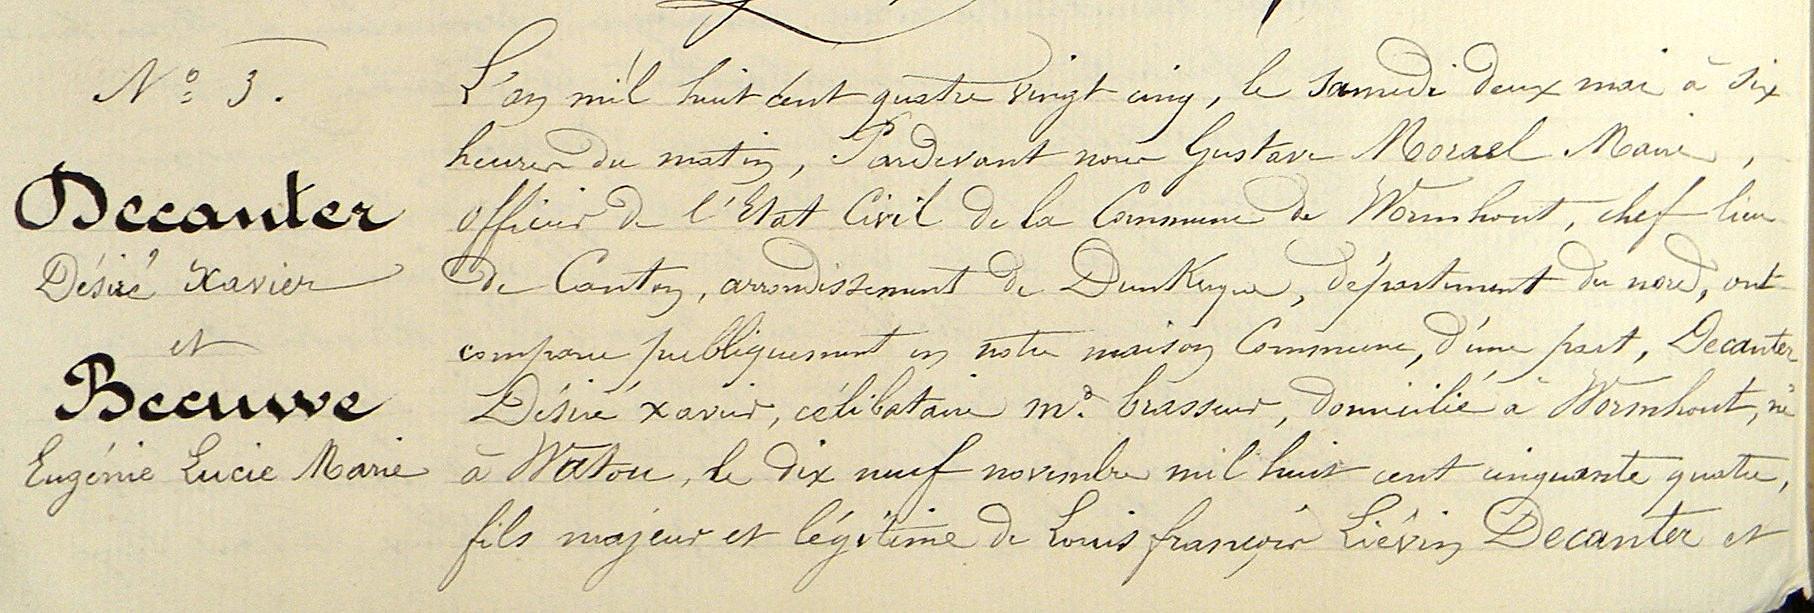 N° 3.
Decanter
Désiré Xavier
et
Becuwe
Eugénie Lucie Marie
L'an mil huit cent quatre vingt cinq, le samedi deux mai à six
heures du matin, Pardevant nous Gustave Morael Maire,
officier de l'Etat Civil de la Commune de Wormhout, chef lieu
de Canton, arrondissement de Dunkerque, département du nord, ont
comparu publiquement en notre maison Commune, d'une part, Decanter
Désiré Xavier, célibataire md. brasseur, domicilié à Wormhout, né
à Watou, le dix neuf novembre mil huit cent cinquante quatre,
fils majeur et légitime de Louis françois Liévin Decanter et